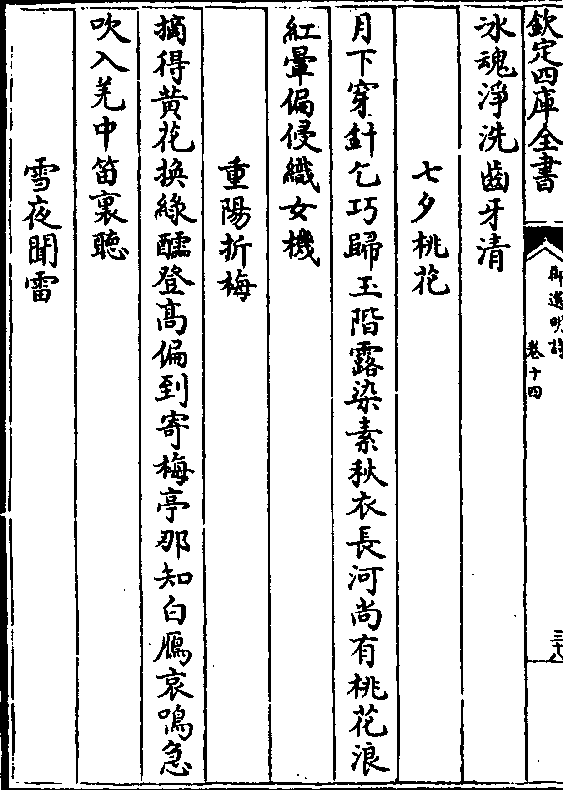 欽定四庫全書
御選明詩
卷十四
三十八
冰魂淨洗齒牙清
七夕桃花
月下穿針乞巧歸玉階露染素秋衣長河尚有桃花浪
紅暈偏侵織女機
重陽折梅
摘得黃花換綠醽登高偏到寄梅亭那知白鴈哀鳴急
吹入羌中笛裏聽
雪夜聞雷